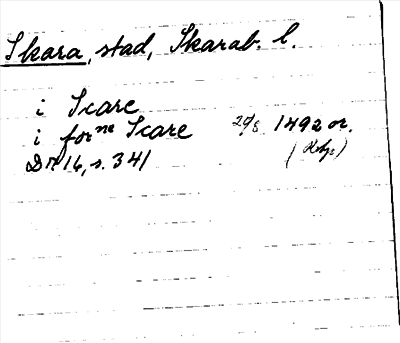 Skara, stad, Skarab. l.
i Scare
i for ne Scare 29/8 1492 or.
DN 16, s. 341